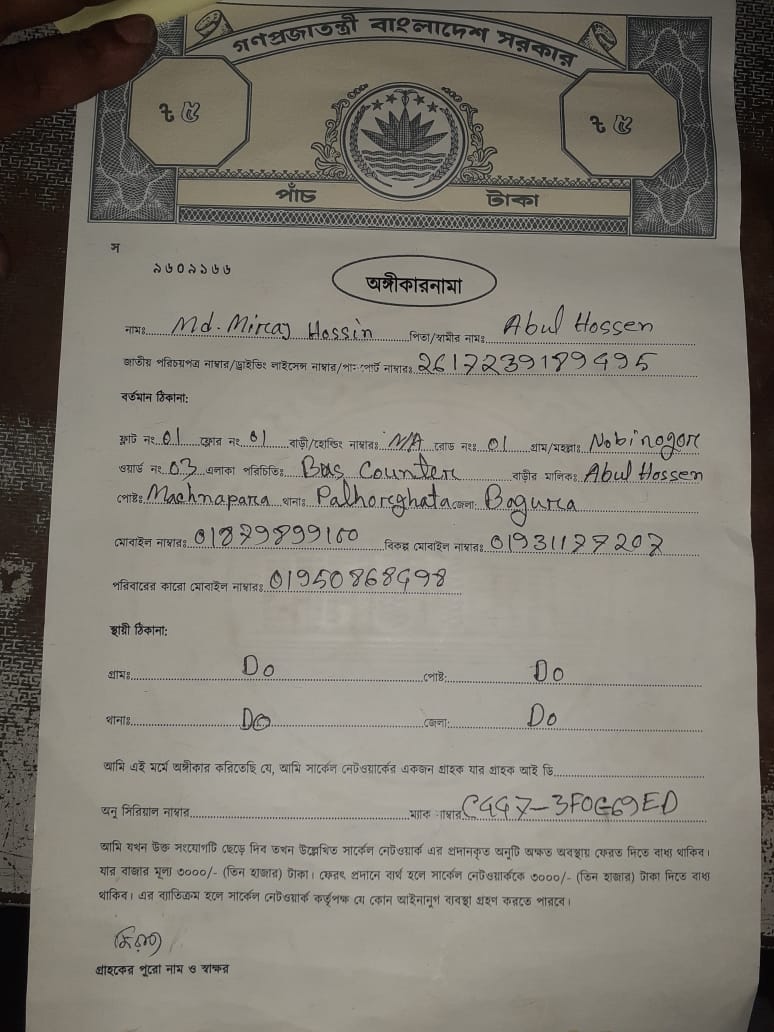 গণপ্রজাতন্ত্রী বাংলাদেশ সরকার
৳ ৫ ৳ ৫
পাঁচ টাকা
স
৯৬০৯৯৬৬
অঙ্গীকারনামা
নামঃ Md. Miraj Hossin পিতা/স্বামীর নামঃ Abul Hossen
জাতীয় পরিচয়পত্র নাম্বার/ড্রাইভিং লাইসেন্স নাম্বার/পাসপোর্ট নাম্বারঃ 2617239189495
বর্তমান ঠিকানা:
ফ্লাট নং 01 ফ্লোর নং 01 বাড়ী/হোল্ডিং নাম্বারঃ N/A রোড নংঃ 01 গ্রাম/মহল্লাঃ Nobinogor
ওয়ার্ড নং 03 এলাকা পরিচিতিঃ Bus Counter বাড়ীর মালিকঃ Abul Hossen
পোষ্টঃ Machnapara থানাঃ Palhorghata জেলা: Bogura
মোবাইল নাম্বারঃ 01879899100 বিকল্প মোবাইল নাম্বারঃ 01931177207
পরিবারের কারো মোবাইল নাম্বারঃ 01950868498
স্থায়ী ঠিকানা:
গ্রামঃ Do পোষ্ট: Do
থানাঃ Do জেলা: Do
আমি এই মর্মে অঙ্গীকার করিতেছি যে, আমি সার্কেল নেটওয়ার্কের একজন গ্রাহক যার গ্রাহক আই ডি
অনু সিরিয়াল নাম্বার ম্যাক নাম্বার C447-3F0G69ED
আমি যখন উক্ত সংযোগটি ছেড়ে দিব তখন উল্লেখিত সার্কেল নেটওয়ার্ক এর প্রদানকৃত অনুটি অক্ষত অবস্থায় ফেরত দিতে বাধ্য থাকিব।
যার বাজার মূল্য ৩০০০/- (তিন হাজার) টাকা। ফেরৎ প্রদানে ব্যর্থ হলে সার্কেল নেটওয়ার্ককে ৩০০০/- (তিন হাজার) টাকা দিতে বাধ্য
থাকিব। এর ব্যতিক্রম হলে সার্কেল নেটওয়ার্ক কর্তৃপক্ষ যে কোন আইনানুগ ব্যবস্থা গ্রহণ করতে পারবে।
গ্রাহকের পুরো নাম ও স্বাক্ষর